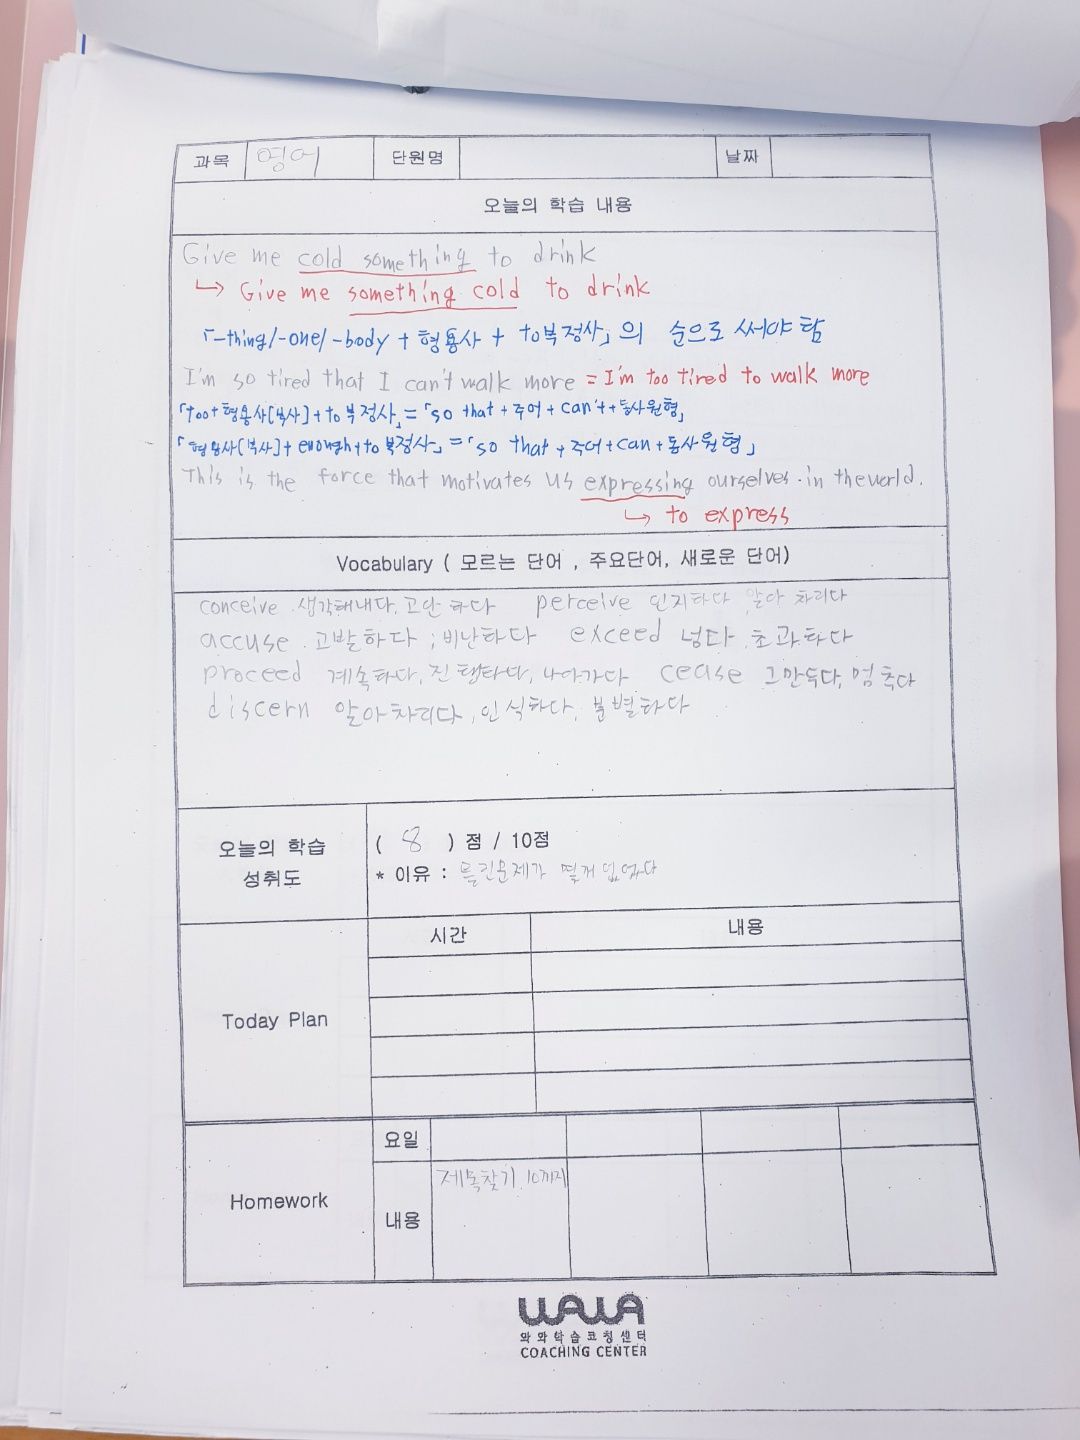 과목 영어 단원명 날짜
오늘의 학습 내용
Give me cold something to drink
↳ Give me something cold to drink
「-thing/-one/-body + 형용사 + to부정사」의 순으로 써야 함
I'm so tired that I can't walk more = I'm too tired to walk more
「too+형용사[부사]+to부정사」=「so that+주어+can't+동사원형」
「형용사[부사]+enough+to부정사」=「so that+주어+can+동사원형」
This is the force that motivates us expressing ourselves in the world.
↳ to express
Vocabulary ( 모르는 단어 , 주요단어, 새로운 단어)
conceive 생각해내다, 고안하다 perceive 인지하다, 알아 차리다
accuse 고발하다, 비난하다 exceed 넘다, 초과하다
proceed 계속하다, 진행하다, 나아가다 cease 그만두다, 멈추다
discern 알아차리다, 인식하다, 분별하다
오늘의 학습 성취도
( 8 ) 점 / 10점
* 이유 : 틀린문제가 몇개 없었다
시간 내용
Today Plan
요일
Homework
내용
제목찾기 10까지
WAWA
와와학습코칭센터
COACHING CENTER